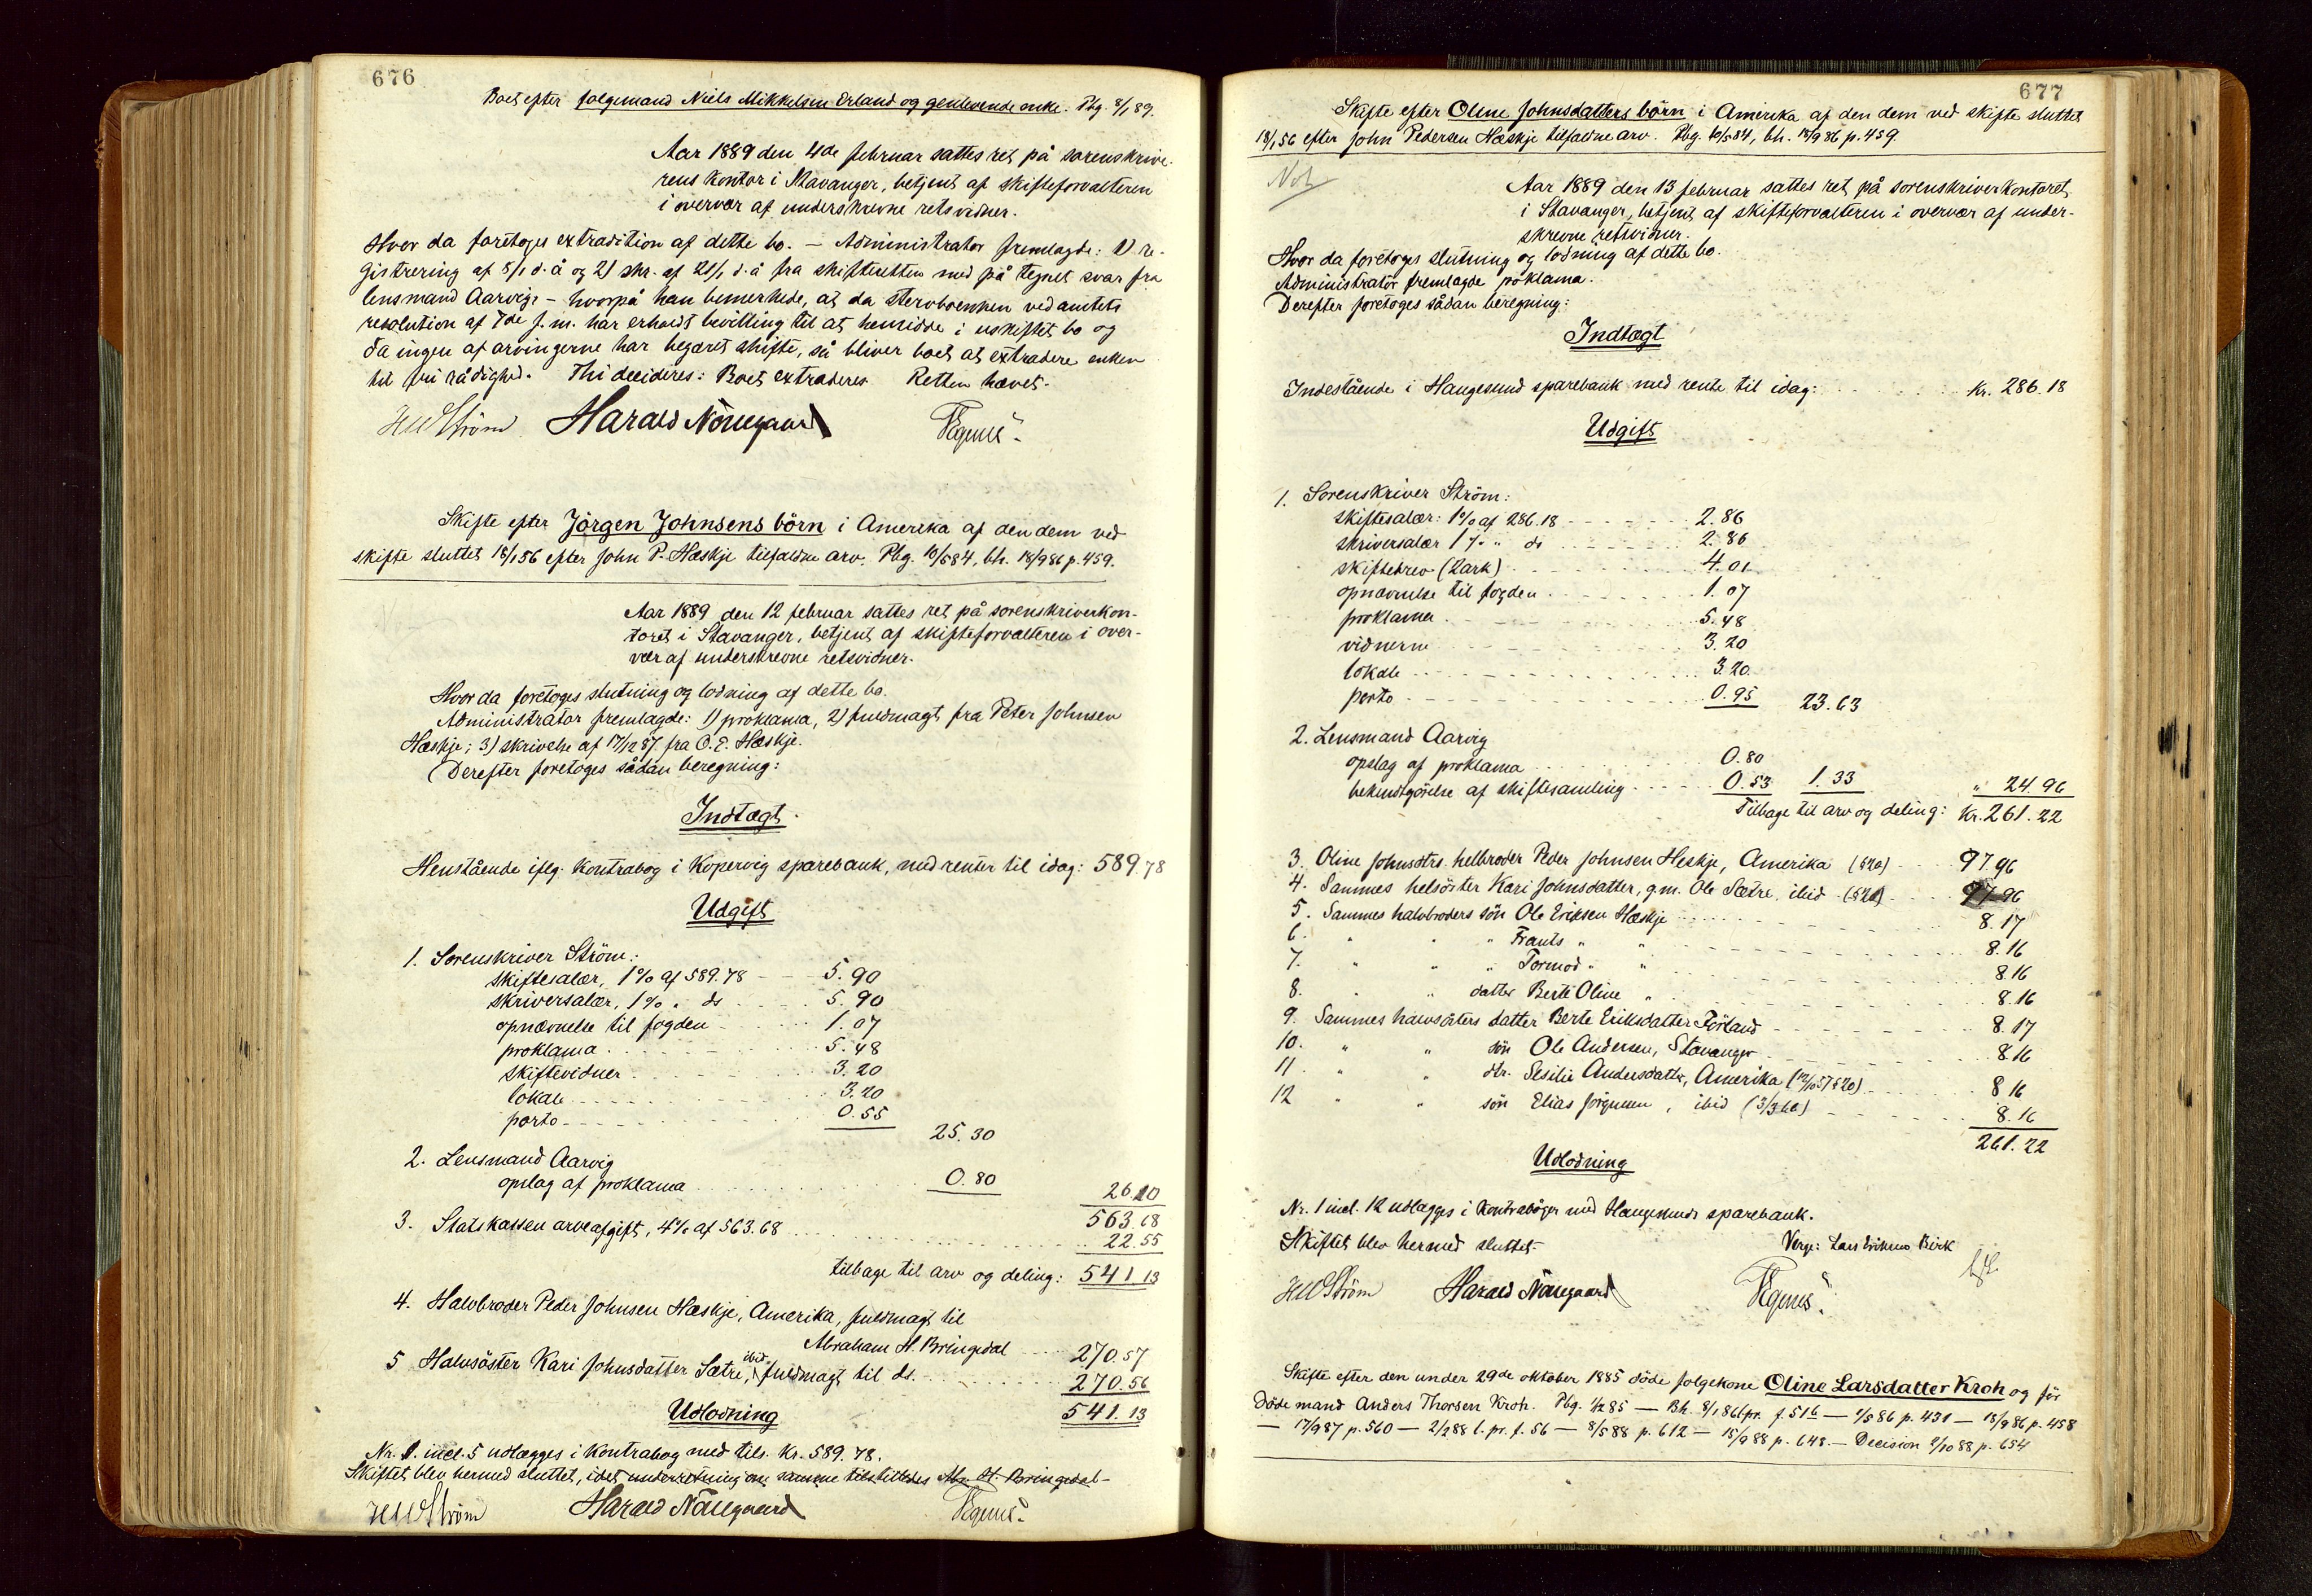 676
Boet efter følgemand Niels Mikkelsen Erland og genlevende enke. Pbg. 8/1 89.
Aar 1889 den 4de februar sattes ret på sorenskrive-
rens kontor i Stavanger, betjent af skifteforvalteren
i overvær af underskrevne retsvidner.
Hvor da foretoges extradition af dette bo. – Administrator fremlagde: 1) re-
gistrering af 8/1 d. å og 2) skr. af 21/1 d. å fra skifteretten med på tegnet svar fra
lensmand Aarvig – hvorpå han bemerkede, at da stervboenken ved amtets
resolution af 7de f. m. har erholdt bevilling til at hensidde i uskiftet bo og
da ingen af arvingerne har begæret skifte, så bliver boet at extradere enken
til fri rådighed. Thi decideres: Boet extraderes. Retten hævet.
HWStröm Harald Nörregaard
Skifte efter Jörgen Johnsens börn i Amerika af den dem ved
skifte sluttet 18/1 56 efter John P. Hæskje tilfaldne arv. Pbg. 10/5 84, bh. 18/9 86 p. 459.
Aar 1889 den 12 februar sattes ret på sorenskriverkon-
toret i Stavanger, betjent af skifteforvalteren i over-
vær af underskrevne retsvidner.
Hvor da foretoges slutning og lodning af dette bo.
Administrator fremlagde: 1) proklama, 2) fuldmagt fra Peter Johnsen
Hæskje; 3) skrivelse af 17/12 87 fra O. E. Hæskje.
Derefter foretoges sådan beregning:
Indtægt.
Henstående iflg. kontrabog i Kopervig sparebank, med renter til idag: 589.78
Udgift
1. Sorenskriver Ström:
skiftesalær, 1% af 589.78 5.90
skriversalær, 1% " do 5.90
opnævnelse til fogden 1.07
proklama 5.48
skiftevidner 3.20
lokale 3.20
porto 0.55
25.30
2. Lensmand Aarvig
opslag af proklama 0.80 26.10
563.68
3. Statskassen arveafgift, 4% af 563.68 22.55
tilbage til arv og deling: 541.13
4. Halvbroder Peder Johnsen Hæskje, Amerika, fuldmagt til
Abraham H. Bringedal 270.57
5 Halvsöster Kari Johnsdatter Sætre, ibid, fuldmagt til ds. 270.56
Udlodning 541.13
Nr. 1. incl. 5 udlægges i kontrabog med tils. kr. 589.78.
Skiftet blev hermed sluttet, idet underretning om samme tilstilledes Abr. H. Bringedal-
HWStröm Harald Nörregaard
677
Skifte efter Oline Johnsdatters börn i Amerika af den dem ved skifte sluttet
18/1 56 efter John Pedersen Hæskje tilfaldne arv. Pbg. 10/5 84, bh. 18/9 86 p. 459.
Not
Aar 1889 den 13 februar sattes ret på sorenskriverkontoret
i Stavanger, betjent af skifteforvalteren i overvær af under-
skrevne retsvidner.
Hvor da foretoges slutning og lodning af dette bo.
Administrator fremlagde proklama.
Derefter foretoges sådan beregning:
Indtægt
Indestående i Haugesund sparebank med rente til idag: kr. 286.18
Udgift
1. Sorenskriver Ström:
skiftesalær: 1% af 286.18 2.86
skriversalær 1% " do 2.86
skiftebrev (2ark) 4.01
opnævnelse til fogden 1.07
proklama 5.48
vidnerne 3.20
lokale 3.20
porto 0.95 23.63
2. Lensmand Aarvig
opslag af proklama 0.80
bekendtgörelse af skiftesamling 0.53 1.33 " 24.96
Tilbage til arv og deling: kr. 261.22
3. Oline Johnsdtrs. helbroder Peder Johnsen Heskje, Amerika (§20) 97.96
4. Sammes helsöster Kari Johnsdatter, g.m. Ole Sætre, ibid (§20) 97.96
5. Sammes halvbroders sön Ole Eriksen Hæskje 8.17
6. " " " Frants " " 8.16
7. " " " Tormod " " 8.16
8. " " datter Berte Oline " 8.16
9. Sammes halvsösters datter Berte Eriksdatter Förland 8.17
10. " " sön Ole Andersen, Stavanger 8.16
11. " " dtr. Sesilie Andersdatter, Amerika (12/10 57 §20) 8.16
12 " " sön Elias Jörgensen, ibid (3/3 60) 8.16
261.22
Udlodning
Nr. 1 incl. 12 udlægges i kontrabøger med Haugesunds sparebank.
Skiftet blev hermed sluttet. Verge: Lars Eriksen Birk
HWStröm Harald Nörregaard
Skifte efter den under 29de oktober 1885 döde følgekone Oline Larsdatter Kroh og för
döde mand Anders Thorsen Kroh. Pbg. 1/2 85 — Bh. 8/1 86 fpr. f. 516 — 1/5 86 p. 431 — 18/9 86 p. 458
— 17/9 87 p. 560 — 2/2 88 l. pr. f. 56 — 8/5 88 p. 612 — 15/9 88 p. 648. — Decision 2/10 88 p. 654